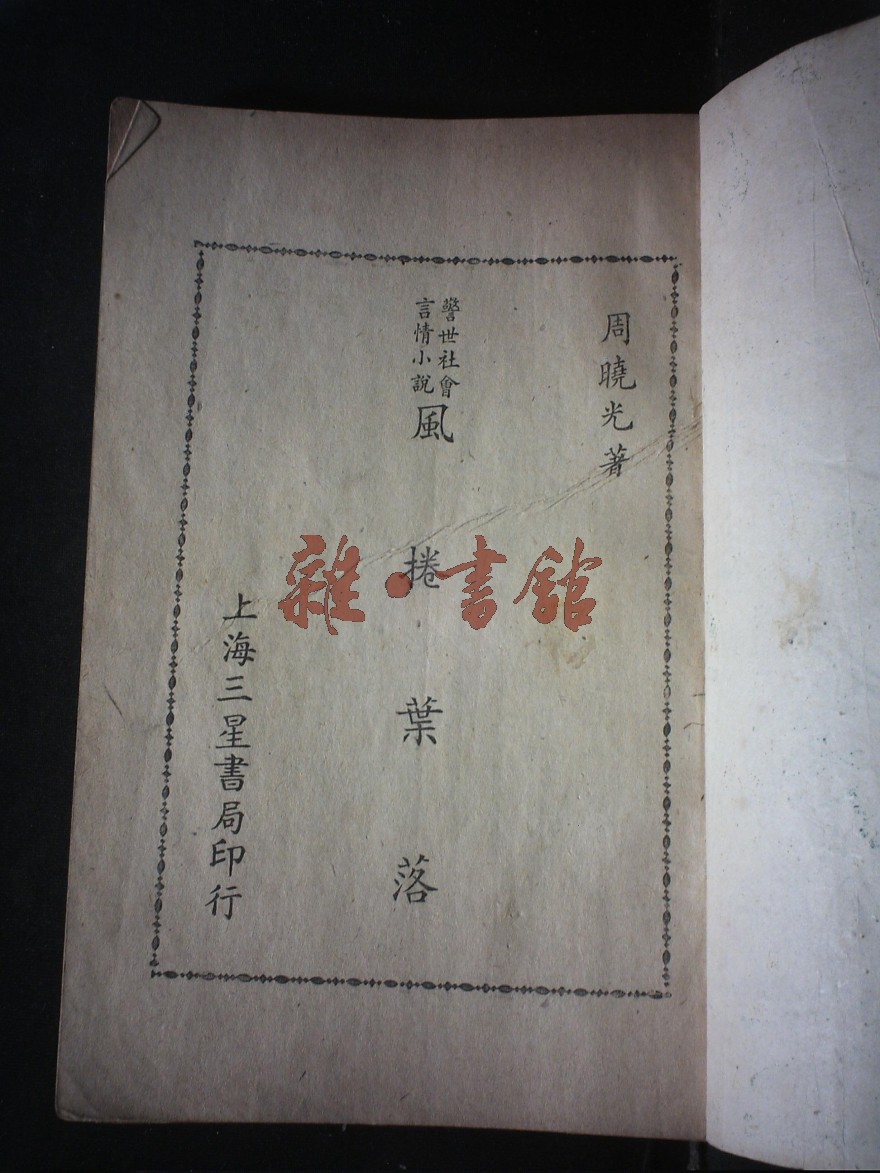 周曉光著
警世社會
言情小說
風捲葉落
上海三星書局印行
雜·書館